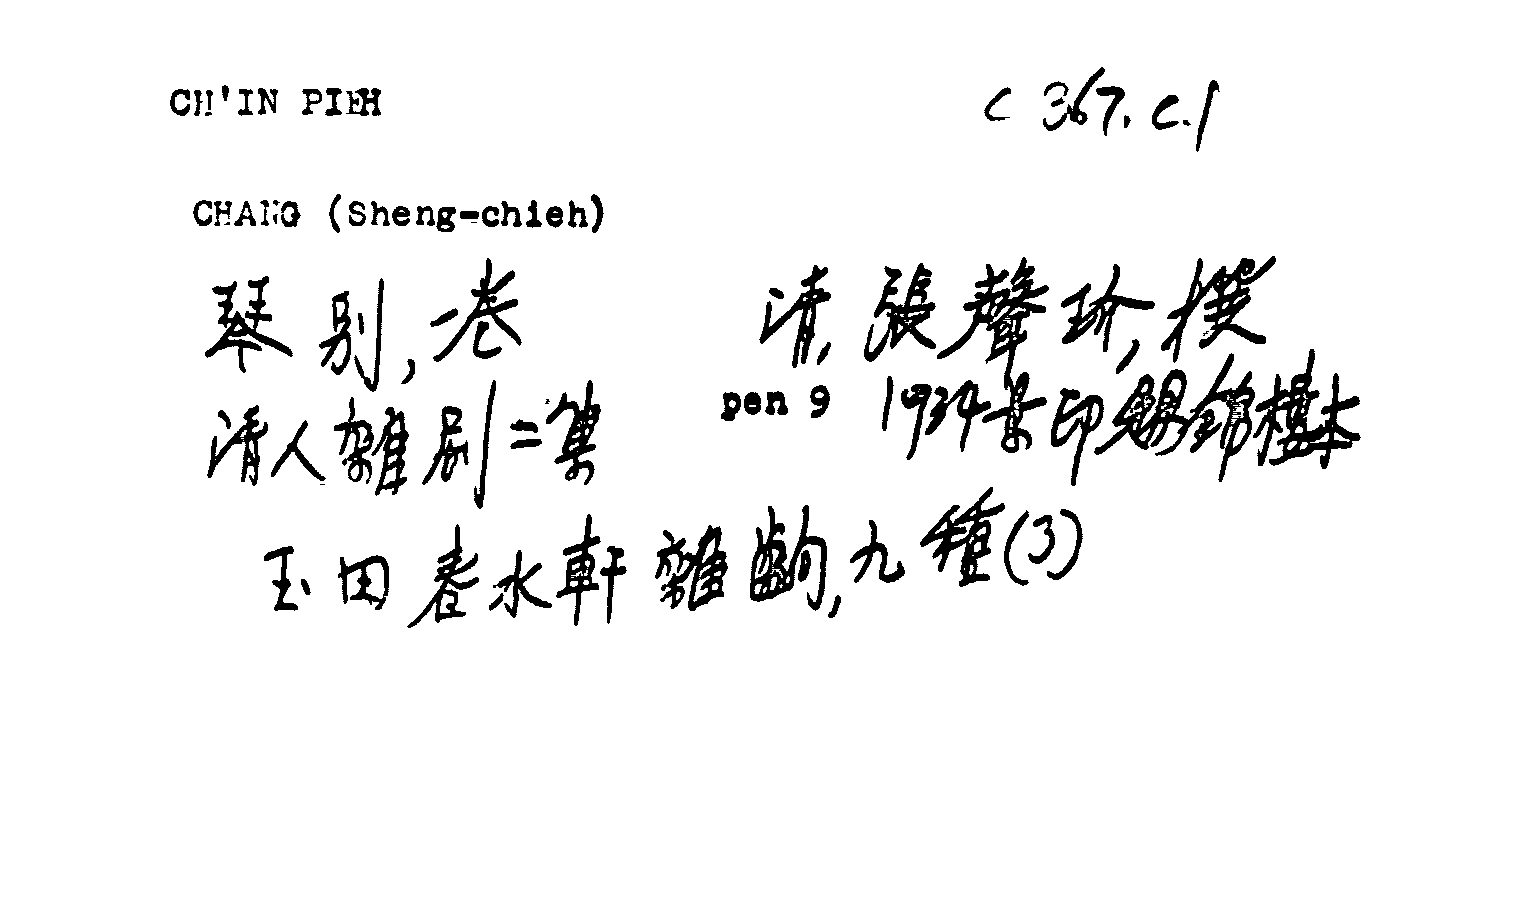 CH'IN PIEH C 367. c.1
CHANG (Sheng-chieh)
琴别,一卷 清,張聲玠,撰
清人雜劇二集 pen 9 1934景印賜錦樓本
玉田春水軒雜齣,九種(3)